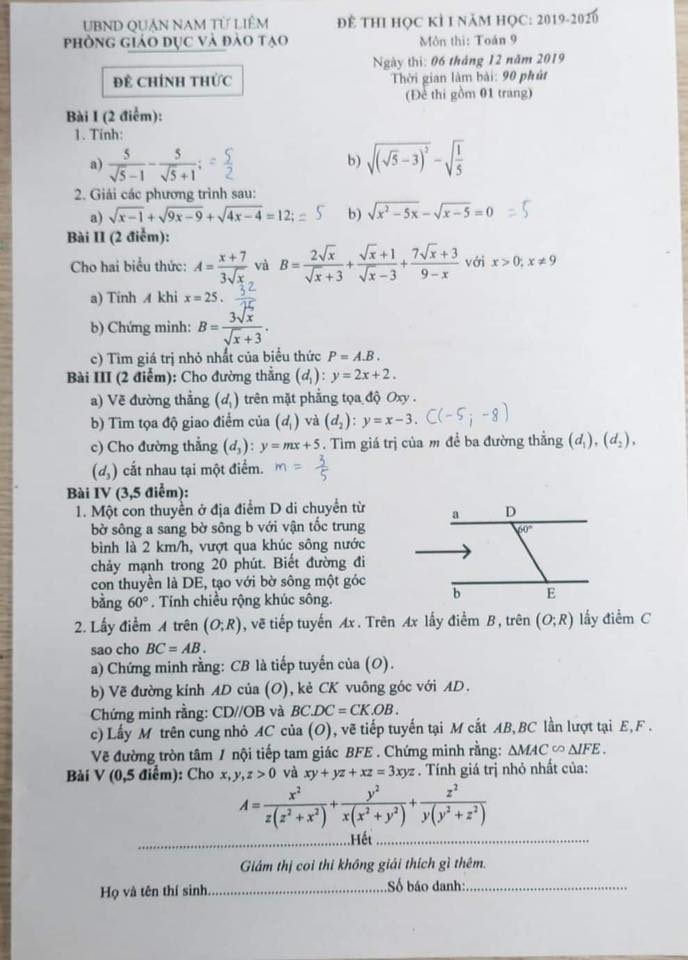 UBND QUẬN NAM TỪ LIÊM
PHÒNG GIÁO DỤC VÀ ĐÀO TẠO
ĐỀ CHÍNH THỨC
ĐỀ THI HỌC KÌ I NĂM HỌC: 2019-2020
Môn thi: Toán 9
Ngày thi: 06 tháng 12 năm 2019
Thời gian làm bài: 90 phút
(Đề thi gồm 01 trang)
Bài I (2 điểm):
1. Tính:
a) 5/(√5-1) - 5/(√5+1); = 5/2 b) √((√5-3)²) - √(1/5)
2. Giải các phương trình sau:
a) √(x-1) + √(9x-9) + √(4x-4) = 12; = 5 b) √(x²-5x) - √(x-5) = 0 = 5
Bài II (2 điểm):
Cho hai biểu thức: A = (x+7)/(3√x) và B = 2√x/(√x+3) + (√x+1)/(√x-3) + (7√x+3)/(9-x) với x > 0; x ≠ 9
a) Tính A khi x = 25. 32/15
b) Chứng minh: B = 3√x/(√x+3).
c) Tìm giá trị nhỏ nhất của biểu thức P = A.B.
Bài III (2 điểm): Cho đường thẳng (d₁): y = 2x+2.
a) Vẽ đường thẳng (d₁) trên mặt phẳng tọa độ Oxy.
b) Tìm tọa độ giao điểm của (d₁) và (d₂): y = x-3. C(-5; -8)
c) Cho đường thẳng (d₃): y = mx+5. Tìm giá trị của m để ba đường thẳng (d₁), (d₂),
(d₃) cắt nhau tại một điểm. m = 3/5
Bài IV (3,5 điểm):
1. Một con thuyền ở địa điểm D di chuyển từ
bờ sông a sang bờ sông b với vận tốc trung
bình là 2 km/h, vượt qua khúc sông nước
chảy mạnh trong 20 phút. Biết đường đi
con thuyền là DE, tạo với bờ sông một góc
bằng 60°. Tính chiều rộng khúc sông.
a D
60°
b E
2. Lấy điểm A trên (O;R), vẽ tiếp tuyến Ax. Trên Ax lấy điểm B, trên (O;R) lấy điểm C
sao cho BC = AB.
a) Chứng minh rằng: CB là tiếp tuyến của (O).
b) Vẽ đường kính AD của (O), kẻ CK vuông góc với AD.
Chứng minh rằng: CD//OB và BC.DC = CK.OB.
c) Lấy M trên cung nhỏ AC của (O), vẽ tiếp tuyến tại M cắt AB, BC lần lượt tại E, F.
Vẽ đường tròn tâm I nội tiếp tam giác BFE. Chứng minh rằng: ΔMAC ∽ ΔIFE.
Bài V (0,5 điểm): Cho x, y, z > 0 và xy + yz + xz = 3xyz. Tính giá trị nhỏ nhất của:
A = x²/(z(z²+x²)) + y²/(x(x²+y²)) + z²/(y(y²+z²))
Hết
Giám thị coi thi không giải thích gì thêm.
Họ và tên thí sinh..............................Số báo danh:..............................